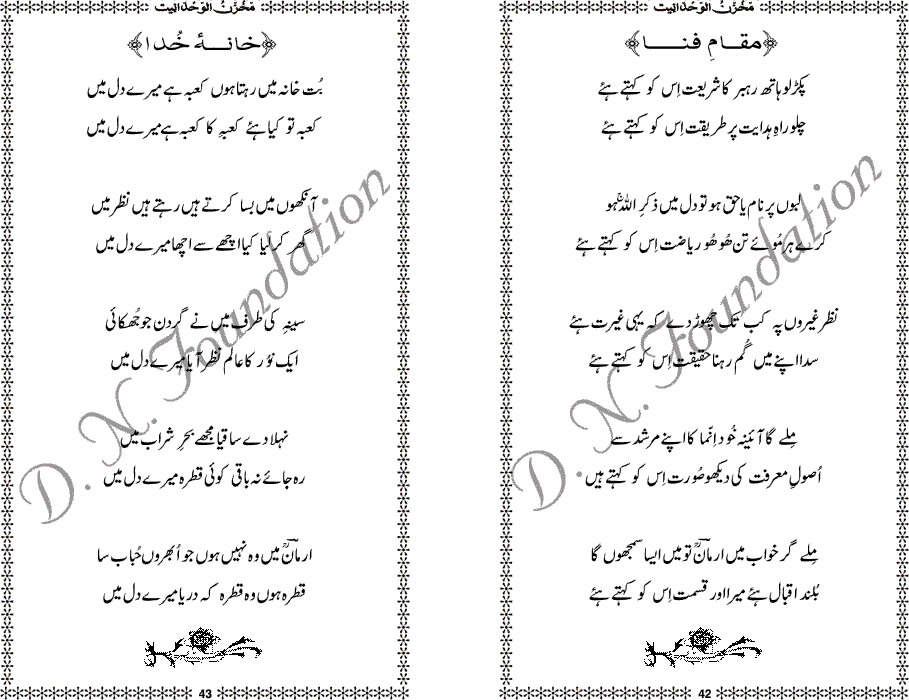 مخزن الوحدانیت
﴿مقامِ فنا﴾
پکڑ لو ہاتھ رہبر کا شریعت اِس کو کہتے ہئے
چلو راہِ ہدایت پر طریقت اِس کو کہتے ہئے
لبوں پر نام یا حق ہو تو دل میں ذکرِ اللہ ہو
کرے ہر مُوئے تن ھُو ھُو ریاضت اِس کو کہتے ہئے
نظر غیروں پہ کب تک چھوڑ دے کہ یہی غیرت ہئے
سدا اپنے میں گُم رہنا حقیقت اِس کو کہتے ہئے
مِلے گا آئینہ خُود اِنّما کا اپنے مرشد سے
اُصولِ معرفت کی دیکھو صُورت اِس کو کہتے ہیں
مِلے گر خواب میں ارمانؔ تو میں ایسا سمجھوں گا
بُلند اقبال ہئے میرا اور قسمت اِس کو کہتے ہئے
42
مخزن الوحدانیت
﴿خانۂ خُدا﴾
بُت خانہ میں رہتا ہوں کعبہ ہے میرے دل میں
کعبہ تو کیا ہئے کعبہِ کا کعبہ ہے میرے دل میں
آنکھوں میں بسا کرتے ہیں رہتے ہیں نظر میں
گھر کر لیا کیا اچھے سے اچھا میرے دل میں
سینہِ کی طرف میں نے گردن جو جُھکائی
ایک نوُر کا عالم نظر آیا میرے دل میں
نہلا دے ساقیا مجھے بحرِ شراب میں
رہ جائے نہ باقی کوئی قطرہ میرے دل میں
ارمانؔ میں وہ نہیں ہوں جو اُبھروں حُباب سا
قطرہ ہوں وہ قطرہ کہ دریا میرے دل میں
43
D. N. Foundation
D. N. Foundation